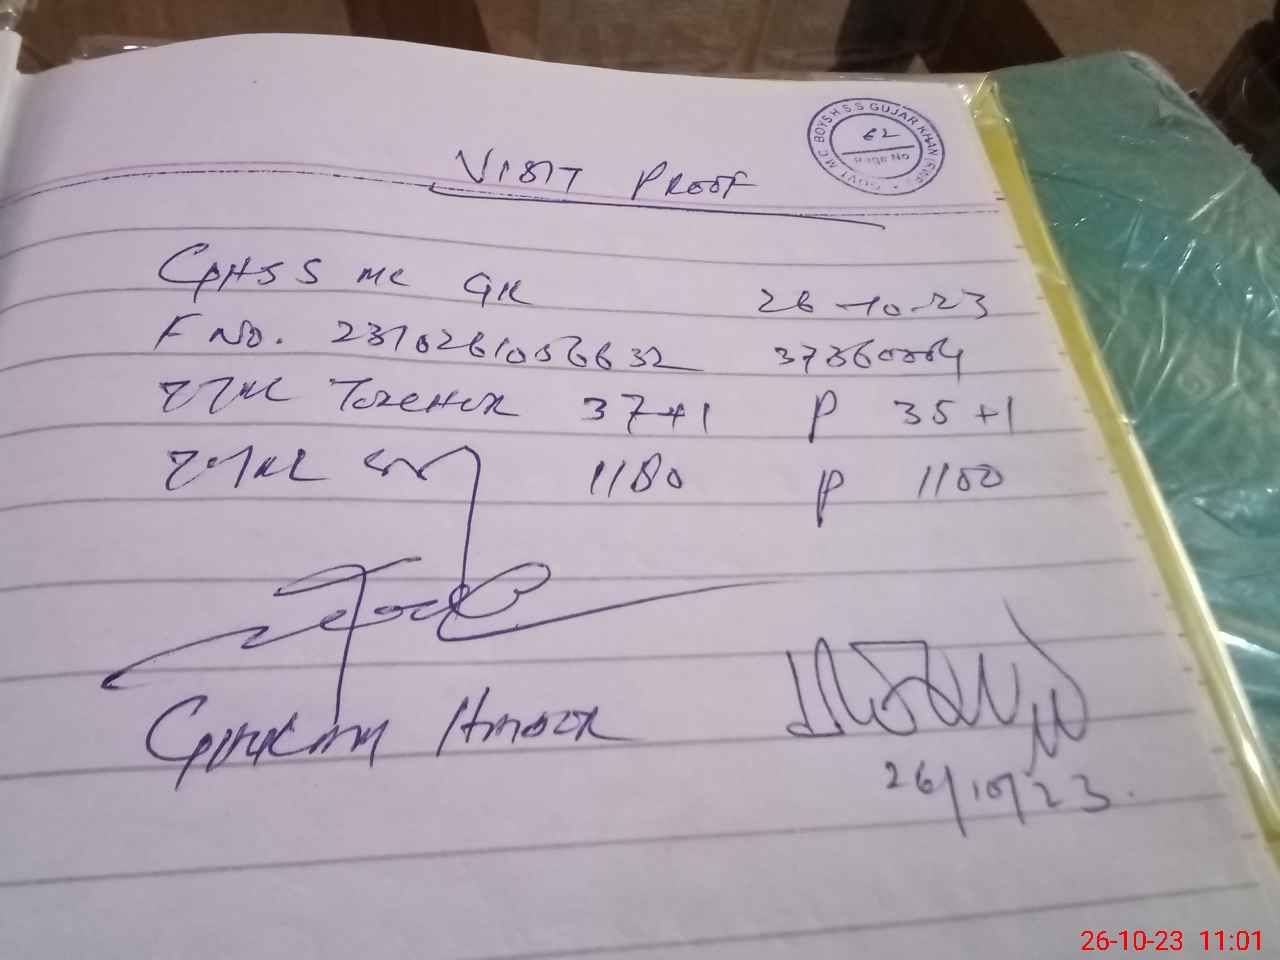 GOVT. M.C BOYS H.S.S GUJAR KHAN (RWP)
62
Page No
VISIT PROOF
GHSS MC GK 26-10-23
F No. 23102610056632 37360004
Total Teacher 37+1 P 35+1
Total 1180 P 1100
26/10/23.
26-10-23 11:01